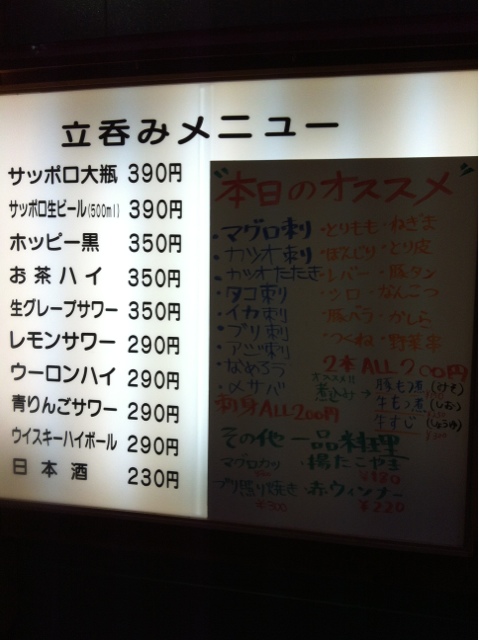 立呑みメニュー
サッポロ大瓶 390円
サッポロ生ビール(500ml) 390円
ホッピー黒 350円
お茶ハイ 350円
生グレープサワー 350円
レモンサワー 290円
ウーロンハイ 290円
青りんごサワー 290円
ウイスキーハイボール 290円
日本酒 230円
"本日のオススメ"
・マグロ刺
・カツオ刺
・カツオたたき
・タコ刺
・イカ刺
・ブリ刺
・アジ刺
・なめろう
・〆サバ
刺身ALL200円
・とりもも・ねぎま
・ぼんじり・とり皮
・レバー・豚タン
・シロ・なんこつ
・豚バラ・かしら
・つくね・野菜串
2本ALL200円
オススメ!!
煮込み→
豚もつ煮(みそ)
牛もつ煮(しお)
牛すじ(しょうゆ)
その他一品料理
マグロカツ
・揚たこやき
¥180
ブリ照り焼き
¥300
・赤ウィンナー
¥220